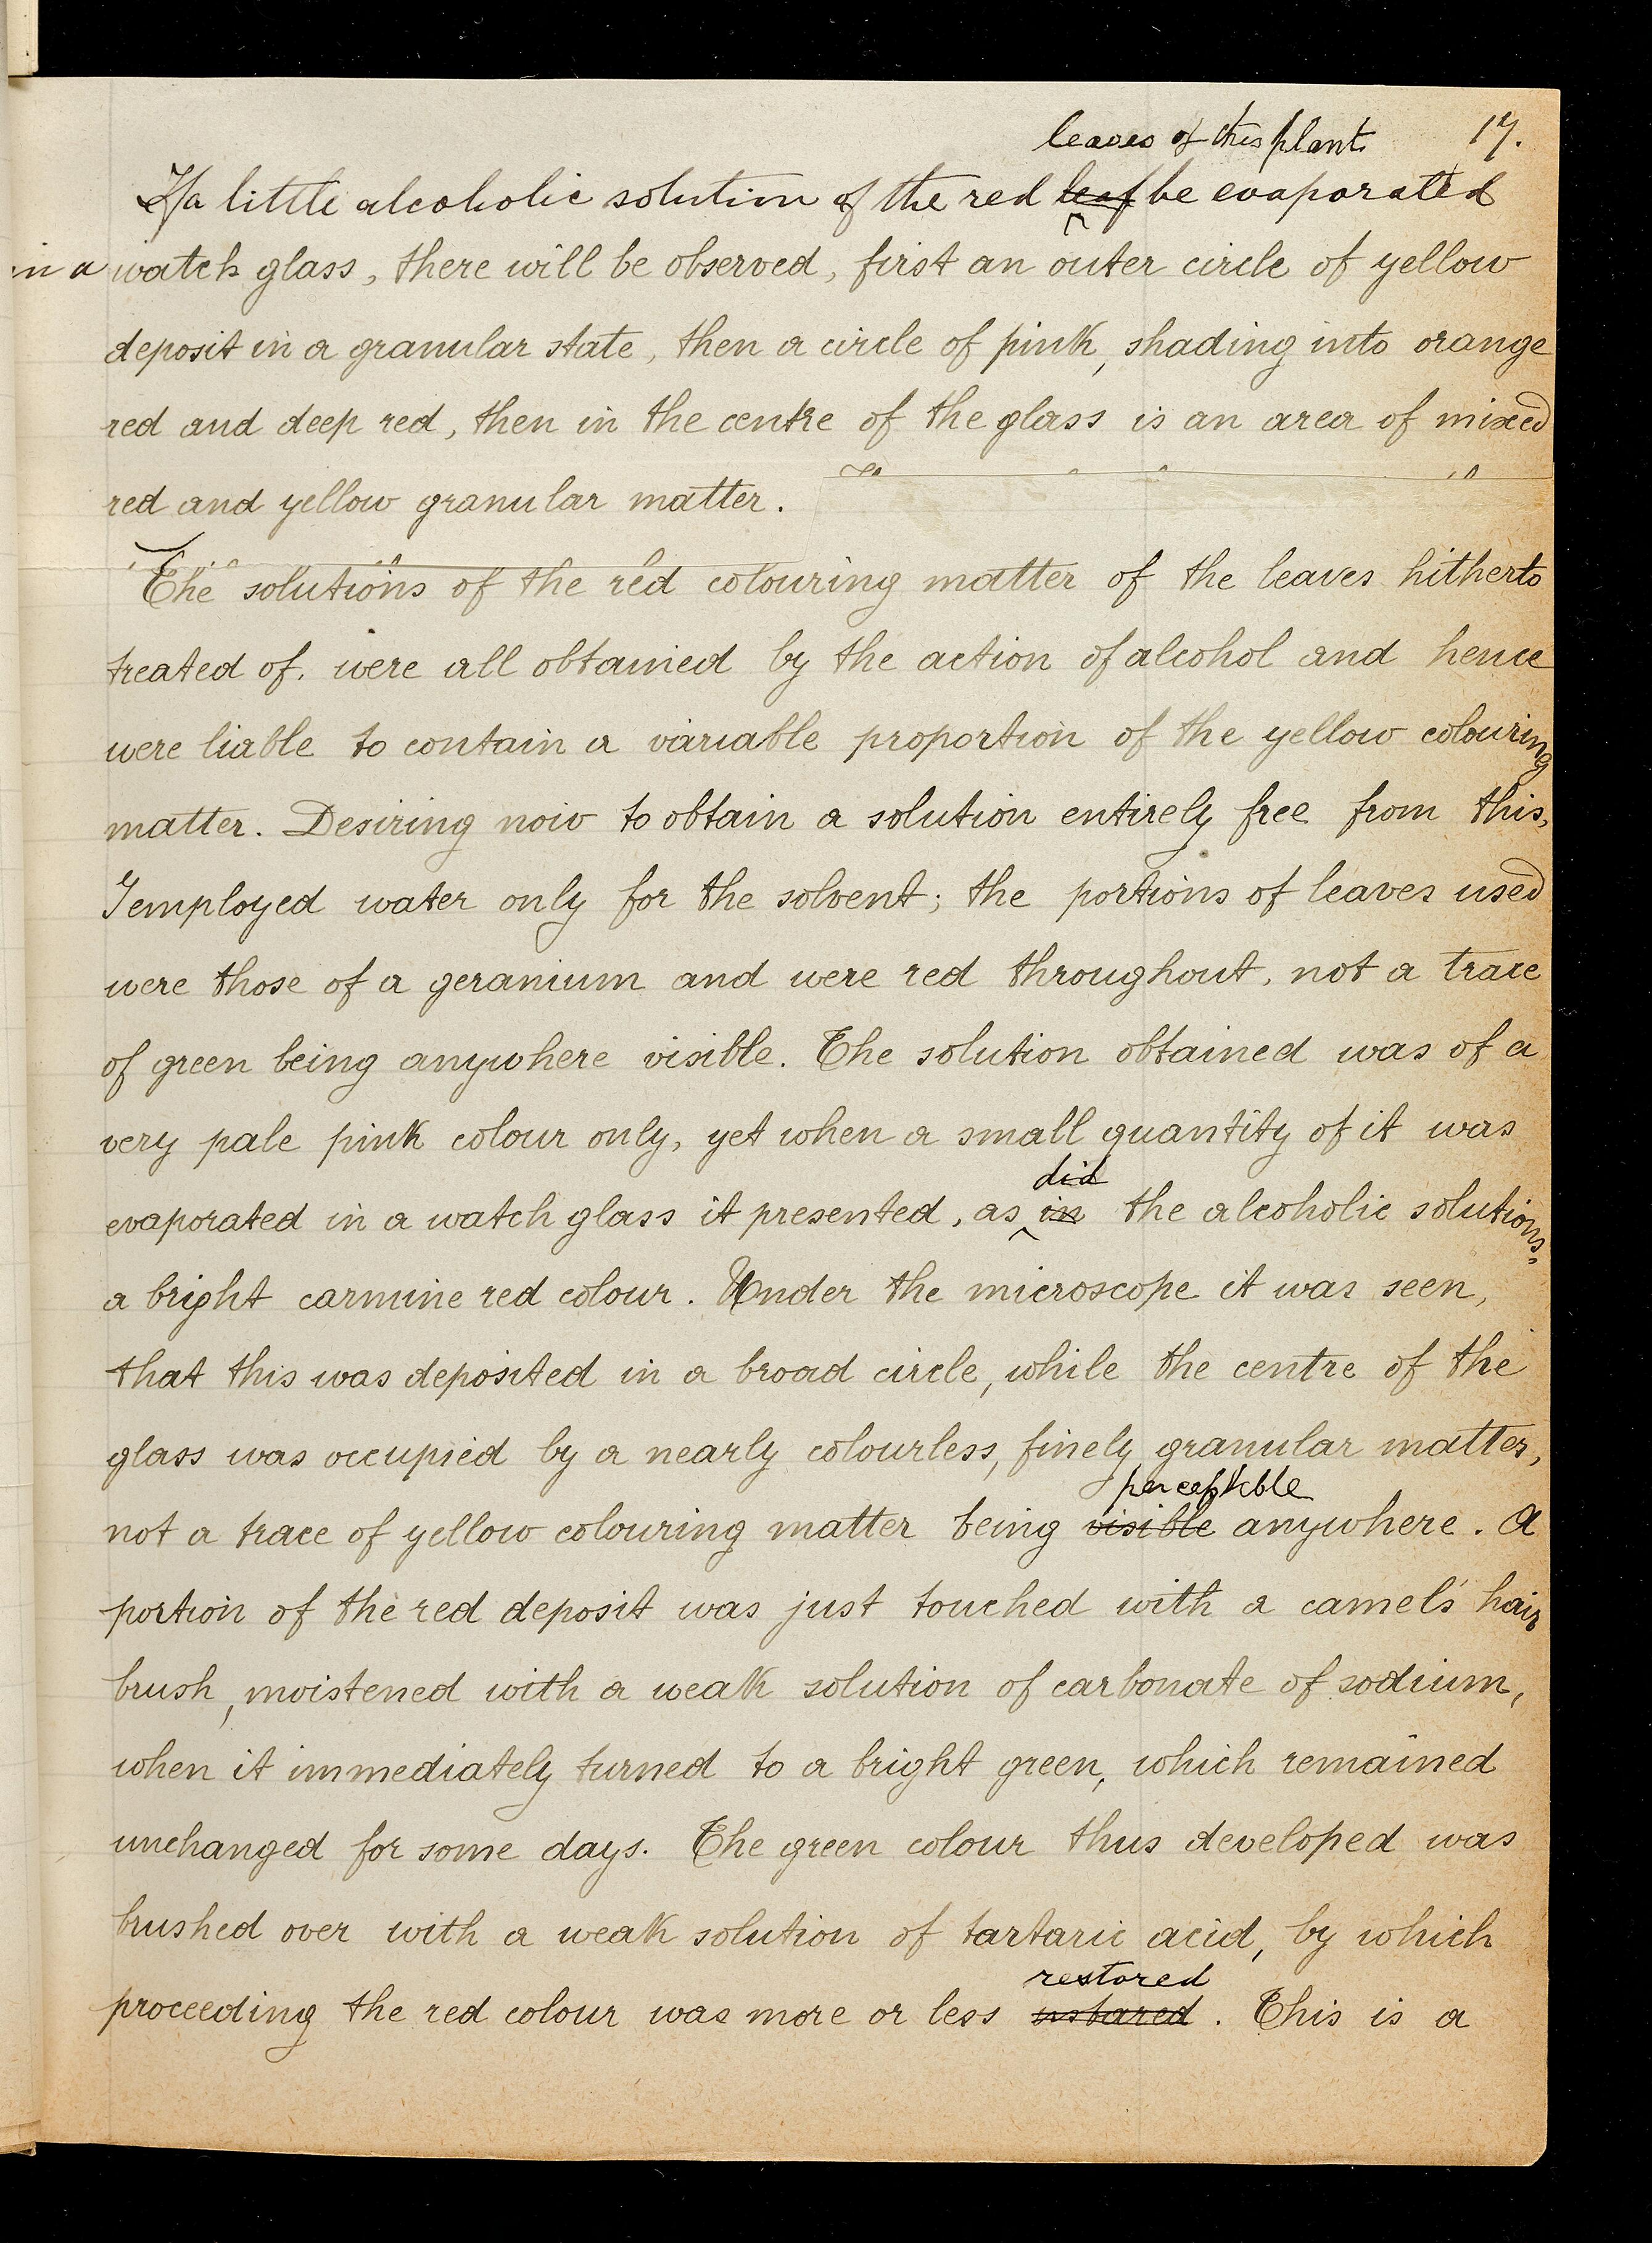 17.
leaves of this plant
If a little alcoholic solution of the red leaf be evaporated
in a watch glass, there will be observed, first an outer circle of yellow
deposit in a granular state, then a circle of pink, shading into orange
red and deep red, then in the centre of the glass is an area of mixed
red and yellow granular matter.
The solutions of the red colouring matter of the leaves hitherto
treated of, were all obtained by the action of alcohol and hence
were liable to contain a variable proportion of the yellow colouring
matter. Desiring now to obtain a solution entirely free from this,
I employed water only for the solvent; the portions of leaves used
were those of a geranium and were red throughout, not a trace
of green being anywhere visible. The solution obtained was of a
very pale pink colour only, yet when a small quantity of it was
did
evaporated in a watch glass it presented, as in the alcoholic solutions,
a bright carmine red colour. Under the microscope it was seen,
that this was deposited in a broad circle, while the centre of the
glass was occupied by a nearly colourless, finely granular matter,
perceptible
not a trace of yellow colouring matter being visible anywhere. A
portion of the red deposit was just touched with a camel's hair
brush, moistened with a weak solution of carbonate of sodium,
when it immediately turned to a bright green, which remained
unchanged for some days. The green colour thus developed was
brushed over with a weak solution of tartaric acid, by which
restored
proceeding the red colour was more or less instared. This is a